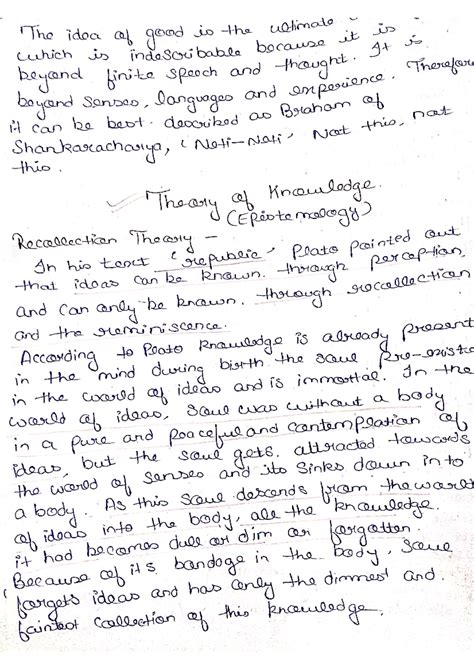 The idea of good is the ultimate
which is indescribable because it is
beyond finite speech and thought. It is
beyond senses, languages and experience. Therefore
it can be best described as Braham of
Shankaracharya, 'Neti-Neti' Not this, not
this.
Theory of Knowledge.
(Epistemology)
Recollection Theory –
In his text 'republic' Plato pointed out
that ideas can be known. through perception,
and can only be known. through recollection
and the reminiscence.
According to Plato knowledge is already present
in the mind during birth the soul Pre-exists
in the world of ideas and is immortal. In the
world of ideas, soul was without a body
in a pure and peaceful and contemplation of
ideas, but the soul gets. attracted towards
the world of senses and its sinks down in to
a body. As this soul descends from the world
of ideas into the body, all the knowledge.
it had becomes dull or dim or forgotten.
Because of its bondage in the body, soul
forgets ideas and has only the dimmest and.
faintest collection of this knowledge.